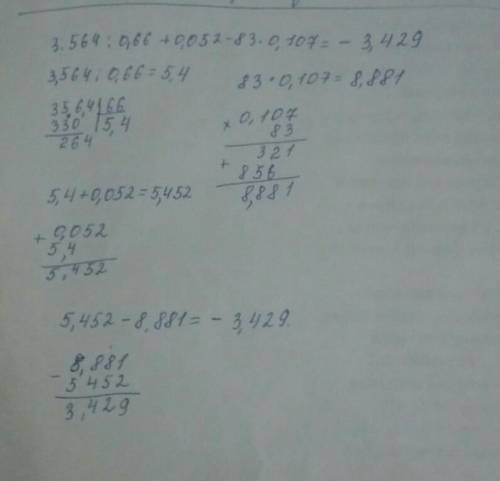 3.564 : 0,66 + 0,052 - 83 · 0,107 = - 3,429
3,564 : 0,66 = 5,4
356,4 | 66
330 | 5,4
264
83 · 0,107 = 8,881
× 0,107
83
321
+
856
8,881
5,4 + 0,052 = 5,452
+ 0,052
5,4
5,452
5,452 - 8,881 = - 3,429.
- 8,881
5 452
3,429